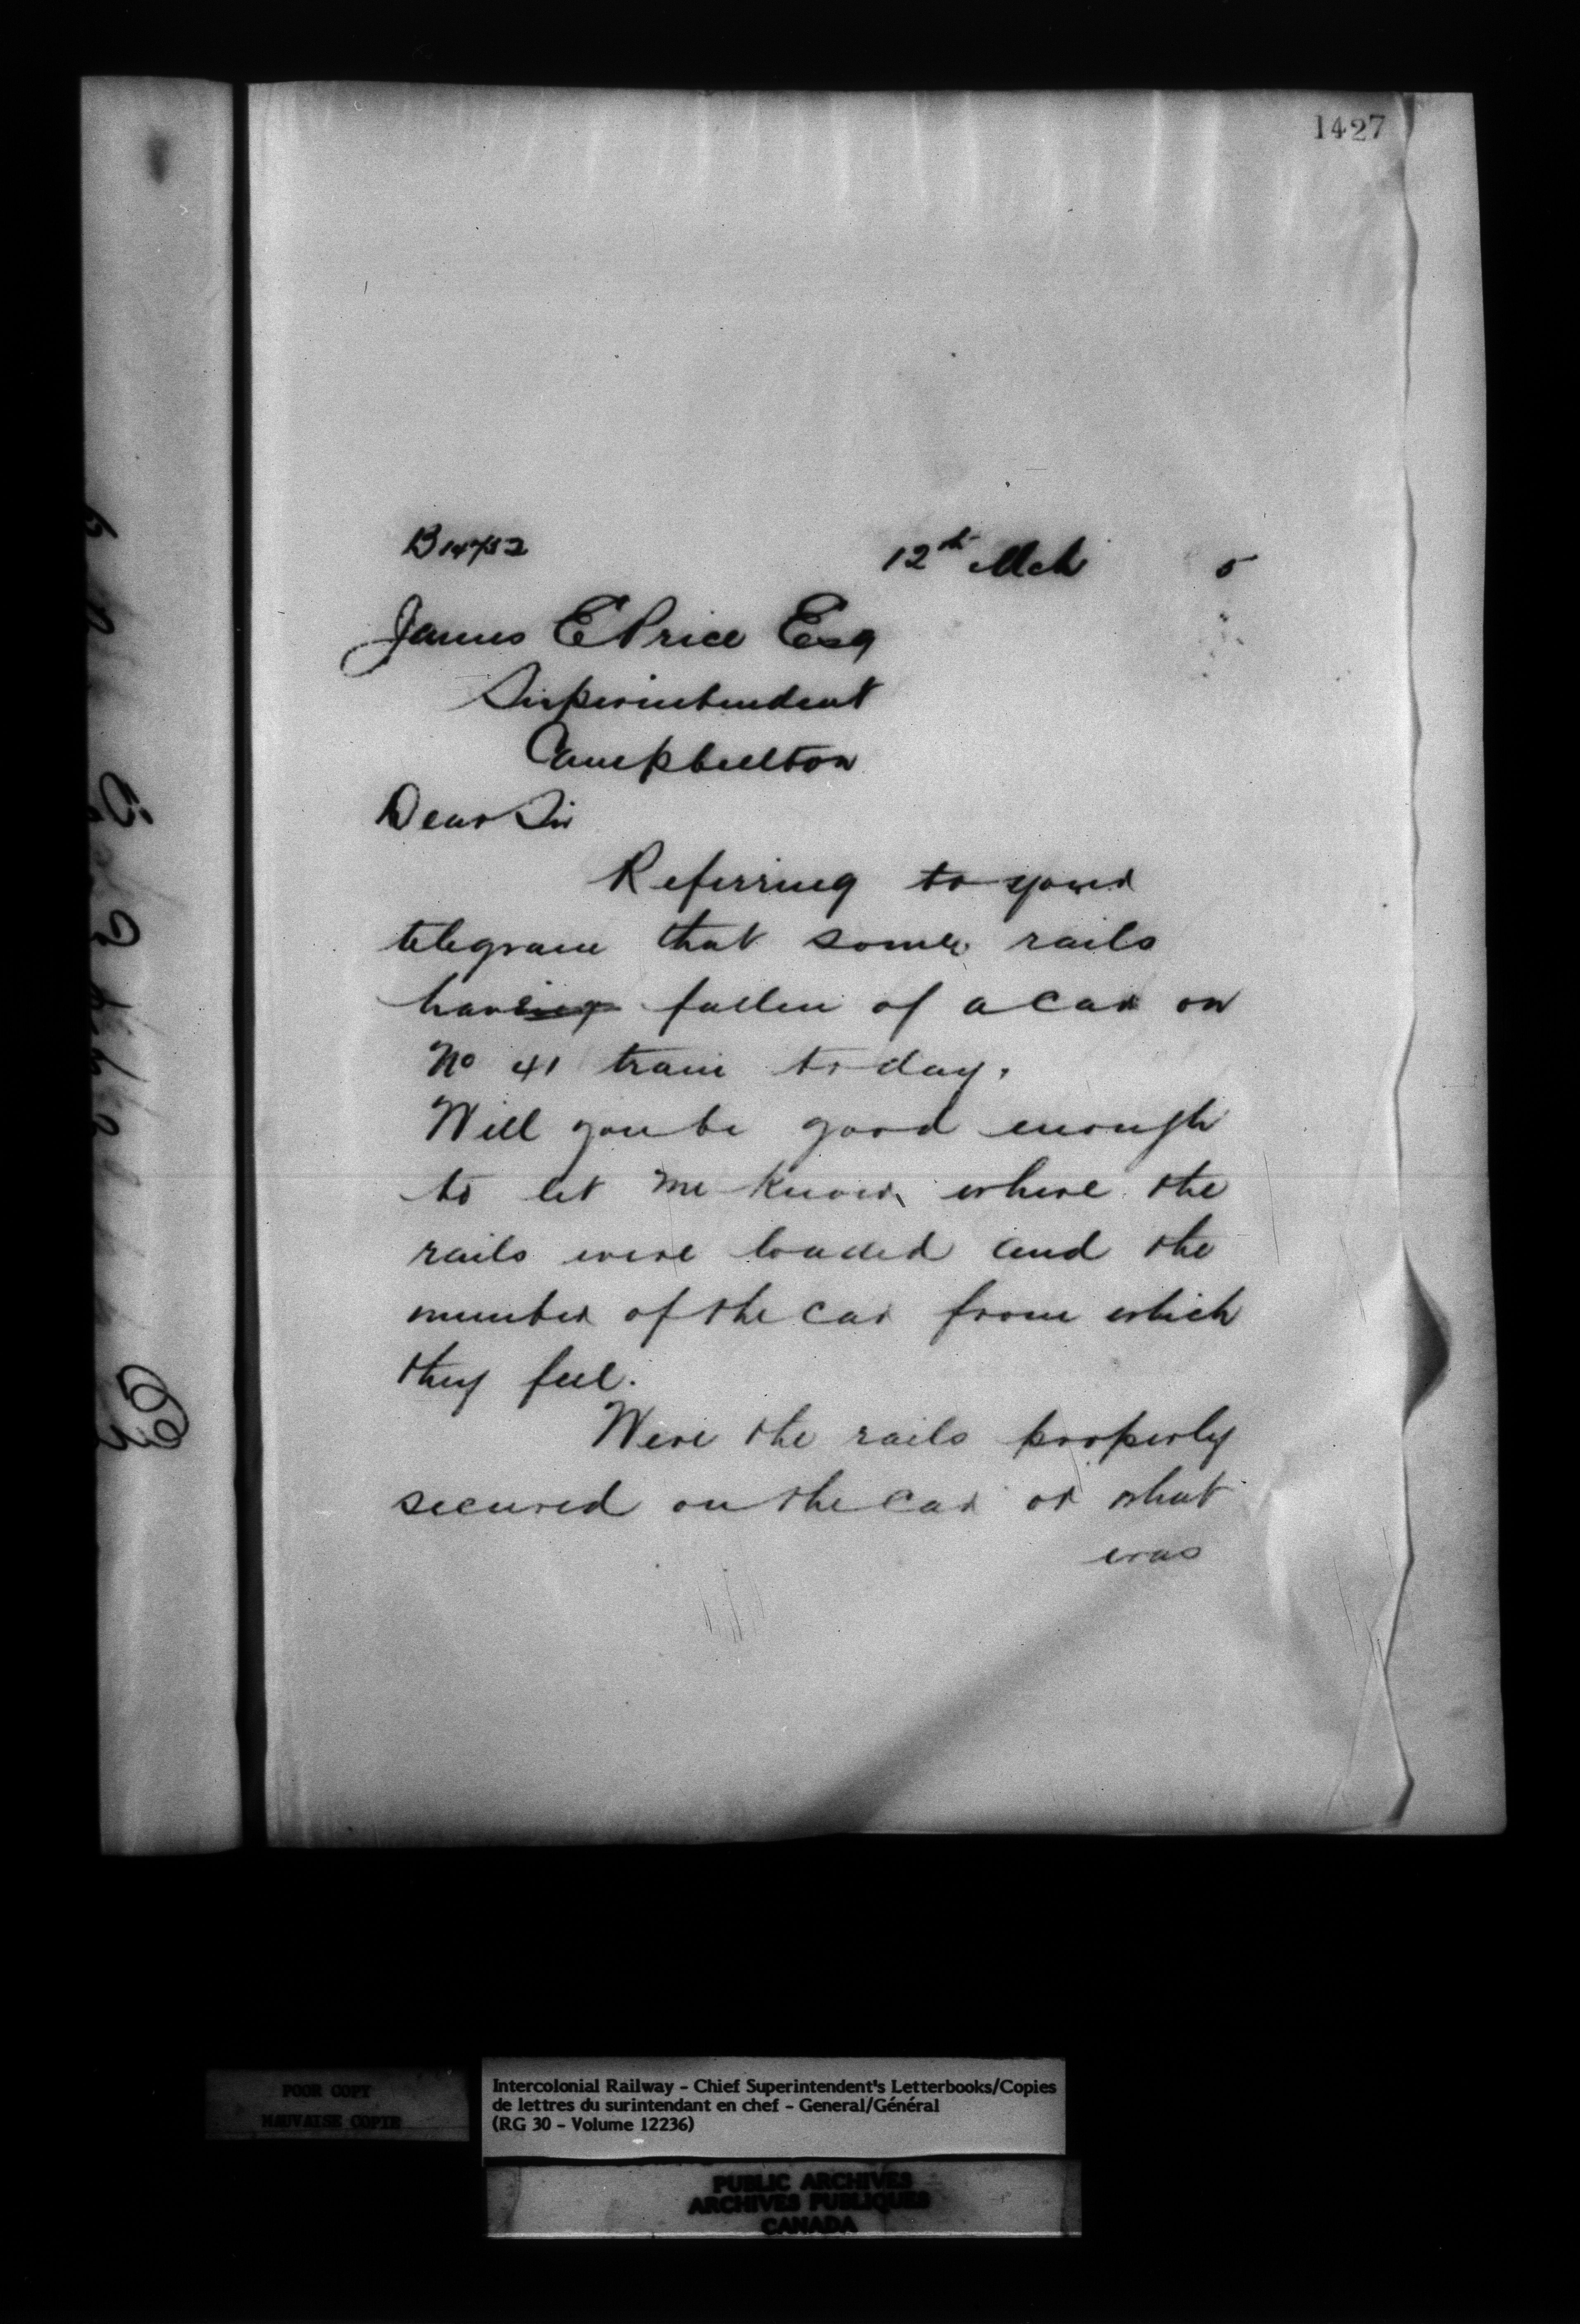 1427
B 14752 12th Mch 5
James E Price Esq
Superintendent
Campbellton
Dear Sir
Referring to your
telegram that some rails
having fallen of a car on
No 41 train to day.
Will you be good enough
to let me know where the
rails were loaded and the
number of the car from which
they fell.
Were the rails properly
secured on the car or what
was
POOR COPY
MAUVAISE COPIE
Intercolonial Railway - Chief Superintendent's Letterbooks/Copies
de lettres du surintendant en chef - General/Général
(RG 30 - Volume 12236)
PUBLIC ARCHIVES
ARCHIVES PUBLIQUES
CANADA